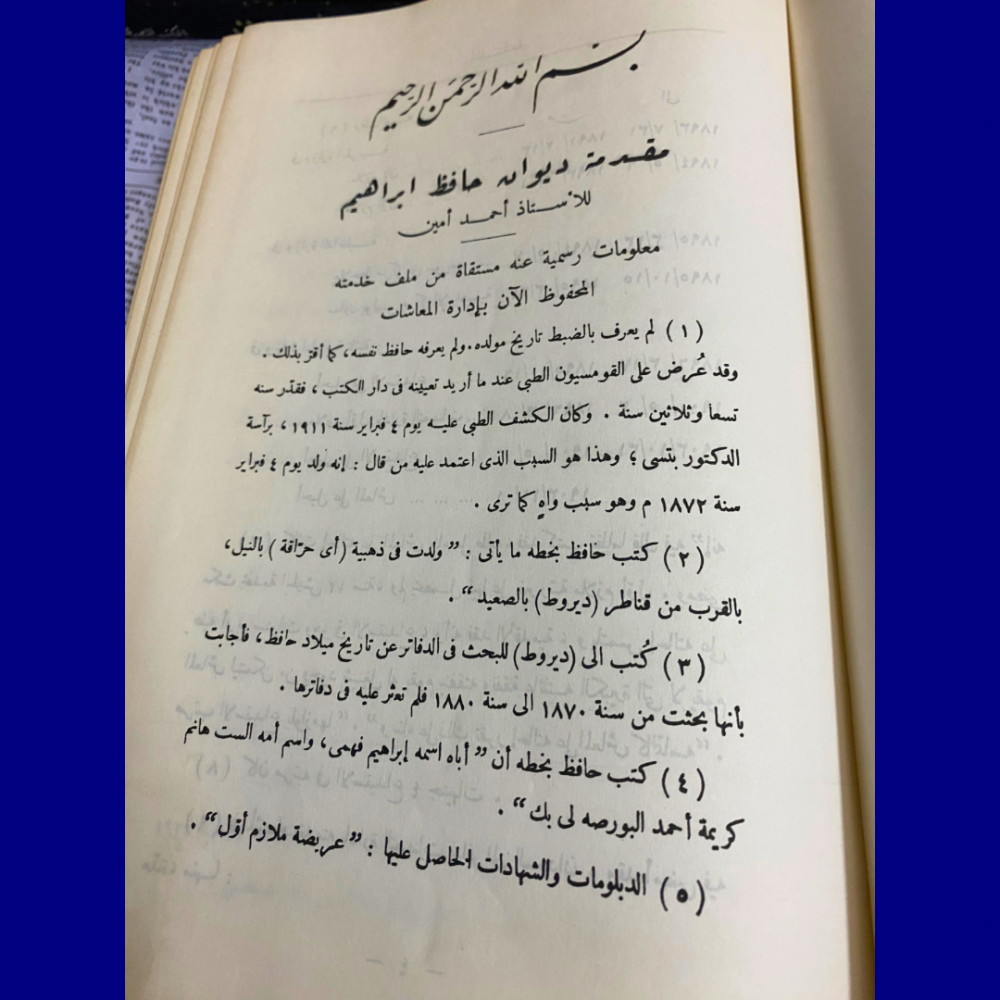 بسم الله الرحمن الرحيم
مقدمة ديوان حافظ ابراهيم
للأستاذ أحمد أمين
معلومات رسمية عنه مستقاة من ملف خدمته
المحفوظ الآن بإدارة المعاشات
(١) لم يعرف بالضبط تاريخ مولده. ولم يعرفه حافظ نفسه، كما أقرّ بذلك.
وقد عُرض على القومسيون الطبى عند ما أريد تعيينه فى دار الكتب، فقدّر سنه
تسعا وثلاثين سنة. وكان الكشف الطبى عليه يوم ٤ فبراير سنة ١٩١١، برآسة
الدكتور بتسى؛ وهذا هو السبب الذى اعتمد عليه من قال: إنه ولد يوم ٤ فبراير
سنة ١٨٧٢ م وهو سبب واهٍ كما ترى.
(٢) كتب حافظ بخطه ما يأتى: ”ولدت فى ذهبية (أى حرّاقة) بالنيل،
بالقرب من قناطر (ديروط) بالصعيد“.
(٣) كُتب الى (ديروط) للبحث فى الدفاتر عن تاريخ ميلاد حافظ، فأجابت
بأنها بحثت من سنة ١٨٧٠ الى سنة ١٨٨٠ فلم تعثر عليه فى دفاترها.
(٤) كتب حافظ بخطه أن ”أباه اسمه إبراهيم فهمى، واسم أمه الست هانم
كريمة أحمد البورصه لى بك“.
(٥) الدبلومات والشهادات الحاصل عليها: ”عريضة ملازم أوّل“.